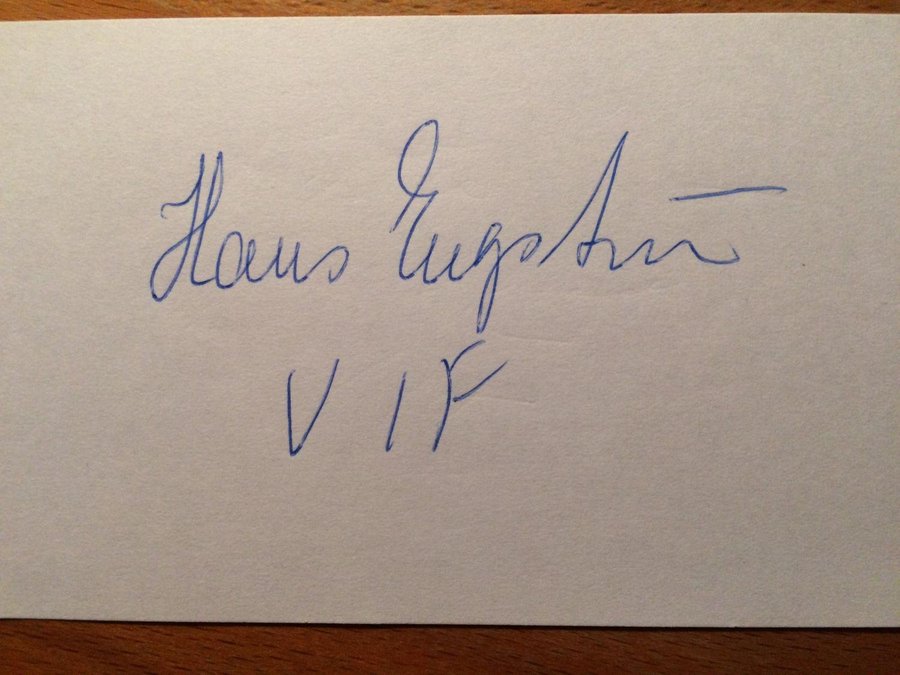 Hans Engström
VIF